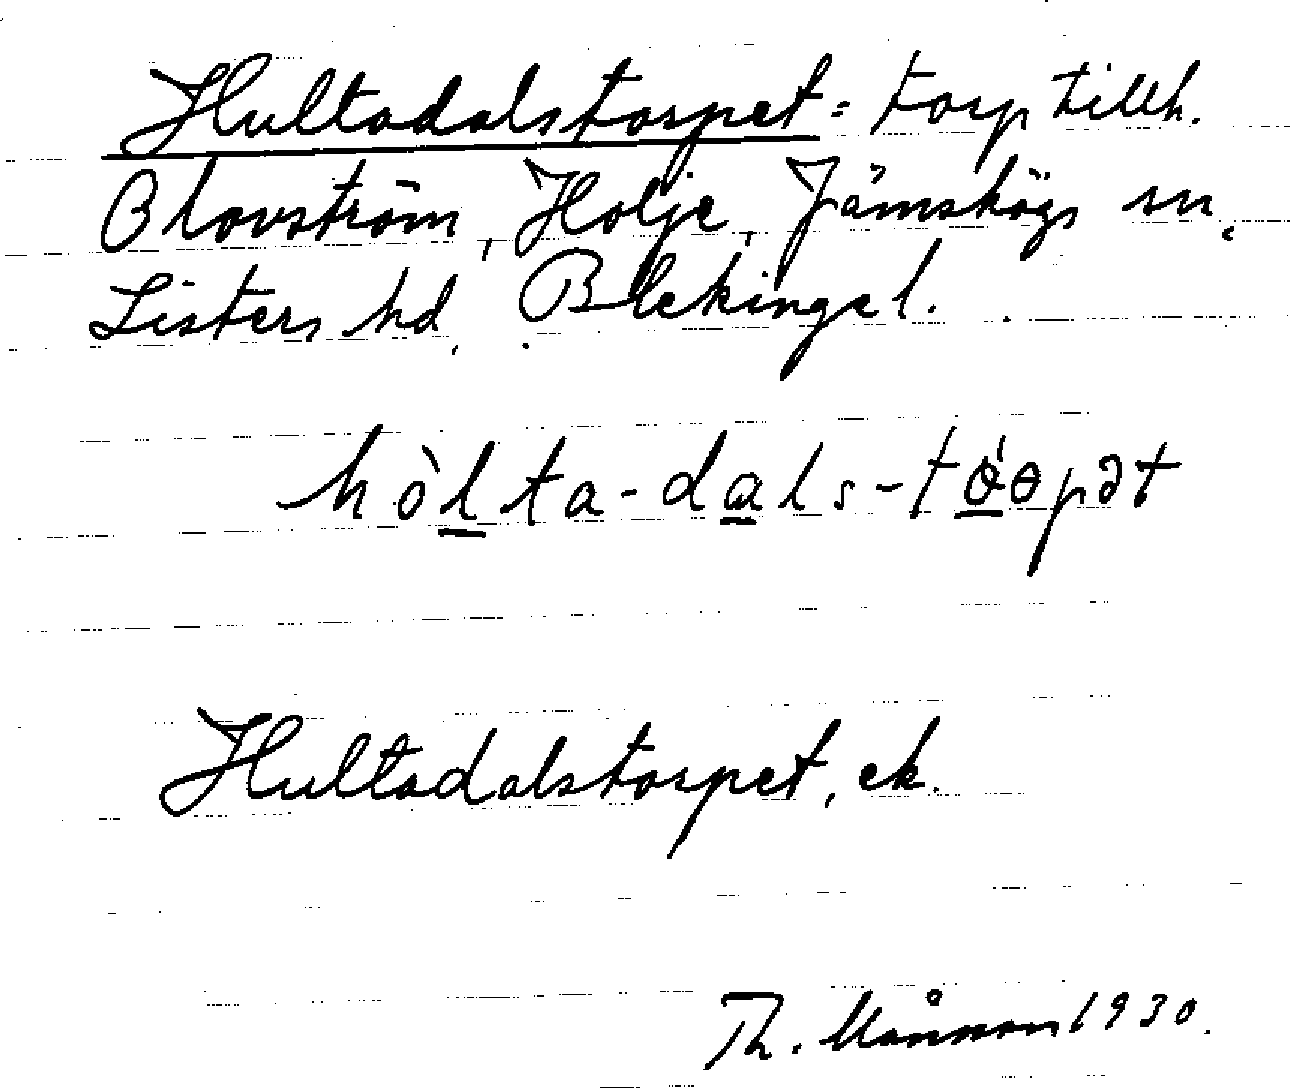 Hultadalstorpet = torp tillh.
Olovström, Holje, Jämshögs sn,
Listers hd, Blekinge l.
hòlta-dals-tɵ́ɵpət
Hultadalstorpet, ek.
Th. Månsson 1930.